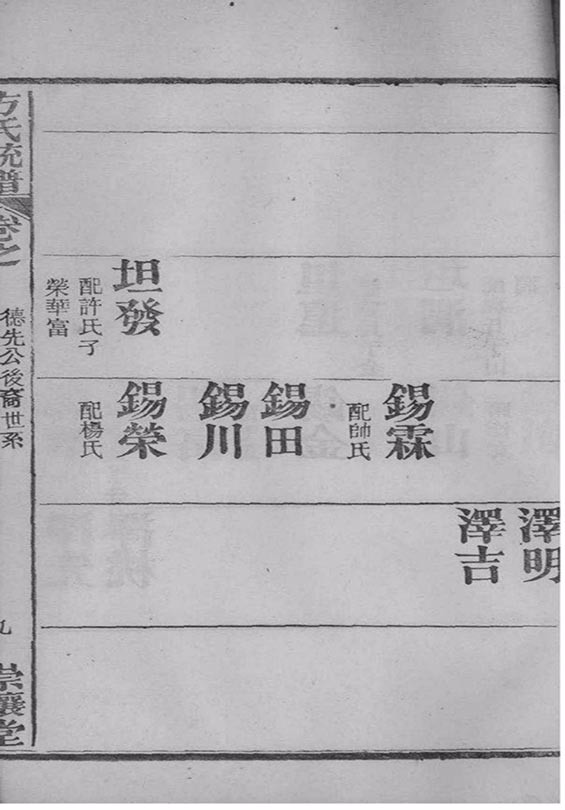 澤明
澤吉
錫霖
配帥氏
錫田
錫川
坦發
配許氏子
榮華富
錫榮
配楊氏
方氏統譜
卷之
德先公後裔世系
九
崇讓堂